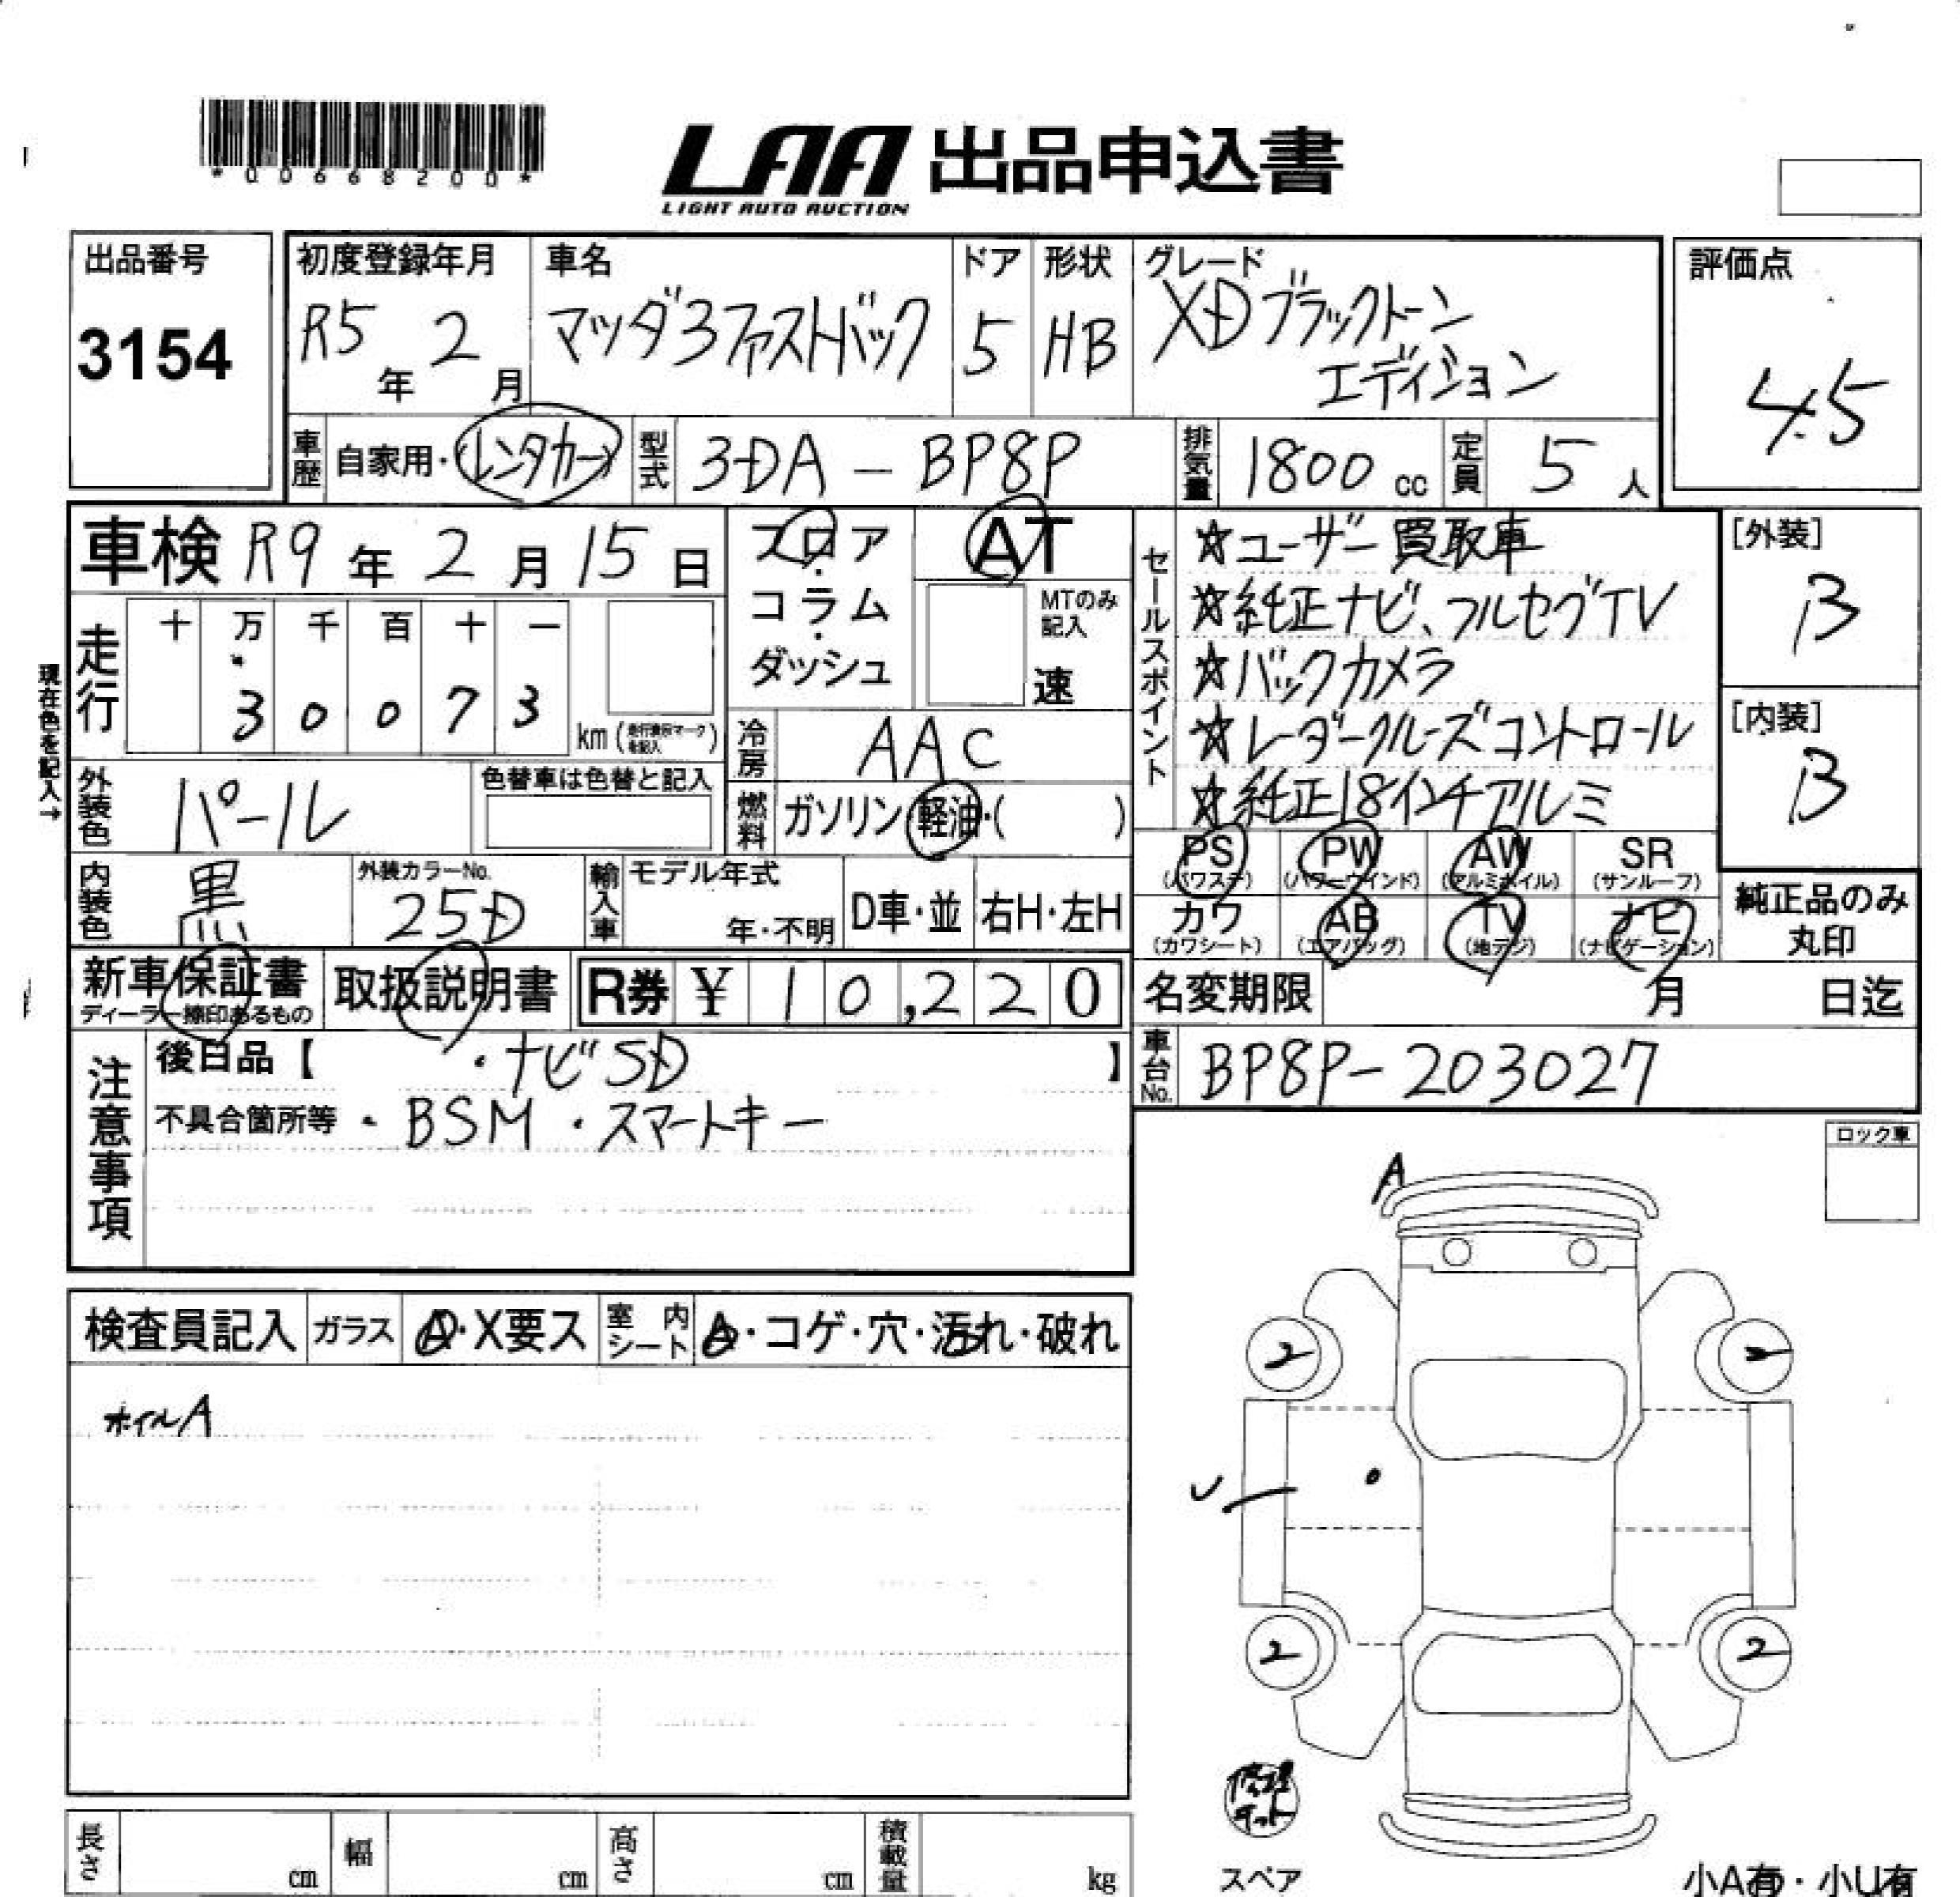 *00668200*
LAA 出品申込書
LIGHT AUTO AUCTION
出品番号
3154
初度登録年月
R5年 2月
車名
マツダ3ファストバック
ドア
5
形状
HB
グレード
XDブラックトーン
エディション
評価点
4.5
車歴 自家用・(レンタカー)
型式 3DA-BP8P
排気量 1800 cc
定員 5 人
車検 R9年 2月 15日
フロア・コラム・ダッシュ
AT
MTのみ記入
速
セールスポイント
☆ユーザー買取車
☆純正ナビ、フルセグTV
☆バックカメラ
☆レーダークルーズコントロール
☆純正18インチアルミ
[外装]
B
[内装]
B
走行
十 万 千 百 十 一
3 0 0 7 3
km (走行表示マークを記入)
現在色を記入→
冷房 AAC
外装色 パール
色替車は色替と記入
燃料 ガソリン・軽油・( )
内装色 黒
外装カラーNo.
25D
輸入車 モデル年式
年・不明
D車・並 右H・左H
PS (パワステ)
PW (パワーウインド)
AW (アルミホイル)
SR (サンルーフ)
カワ (カワシート)
AB (エアバッグ)
TV (地デジ)
ナビ (ナビゲーション)
純正品のみ
丸印
新車保証書
ディーラー捺印あるもの
取扱説明書
R券 ¥ 10,220
名変期限 月 日迄
注意事項
後日品【 ・ナビSD 】
不具合箇所等 ・BSM ・スマートキー
車台No. BP8P-203027
ロック車
A
検査員記入 ガラス A・X要ス 室内シート A・コゲ・穴・汚れ・破れ
ホイルA
2
2
U
2
2
修理キット
スペア
長さ cm 幅 cm 高さ cm 積載量 kg
小A有・小U有